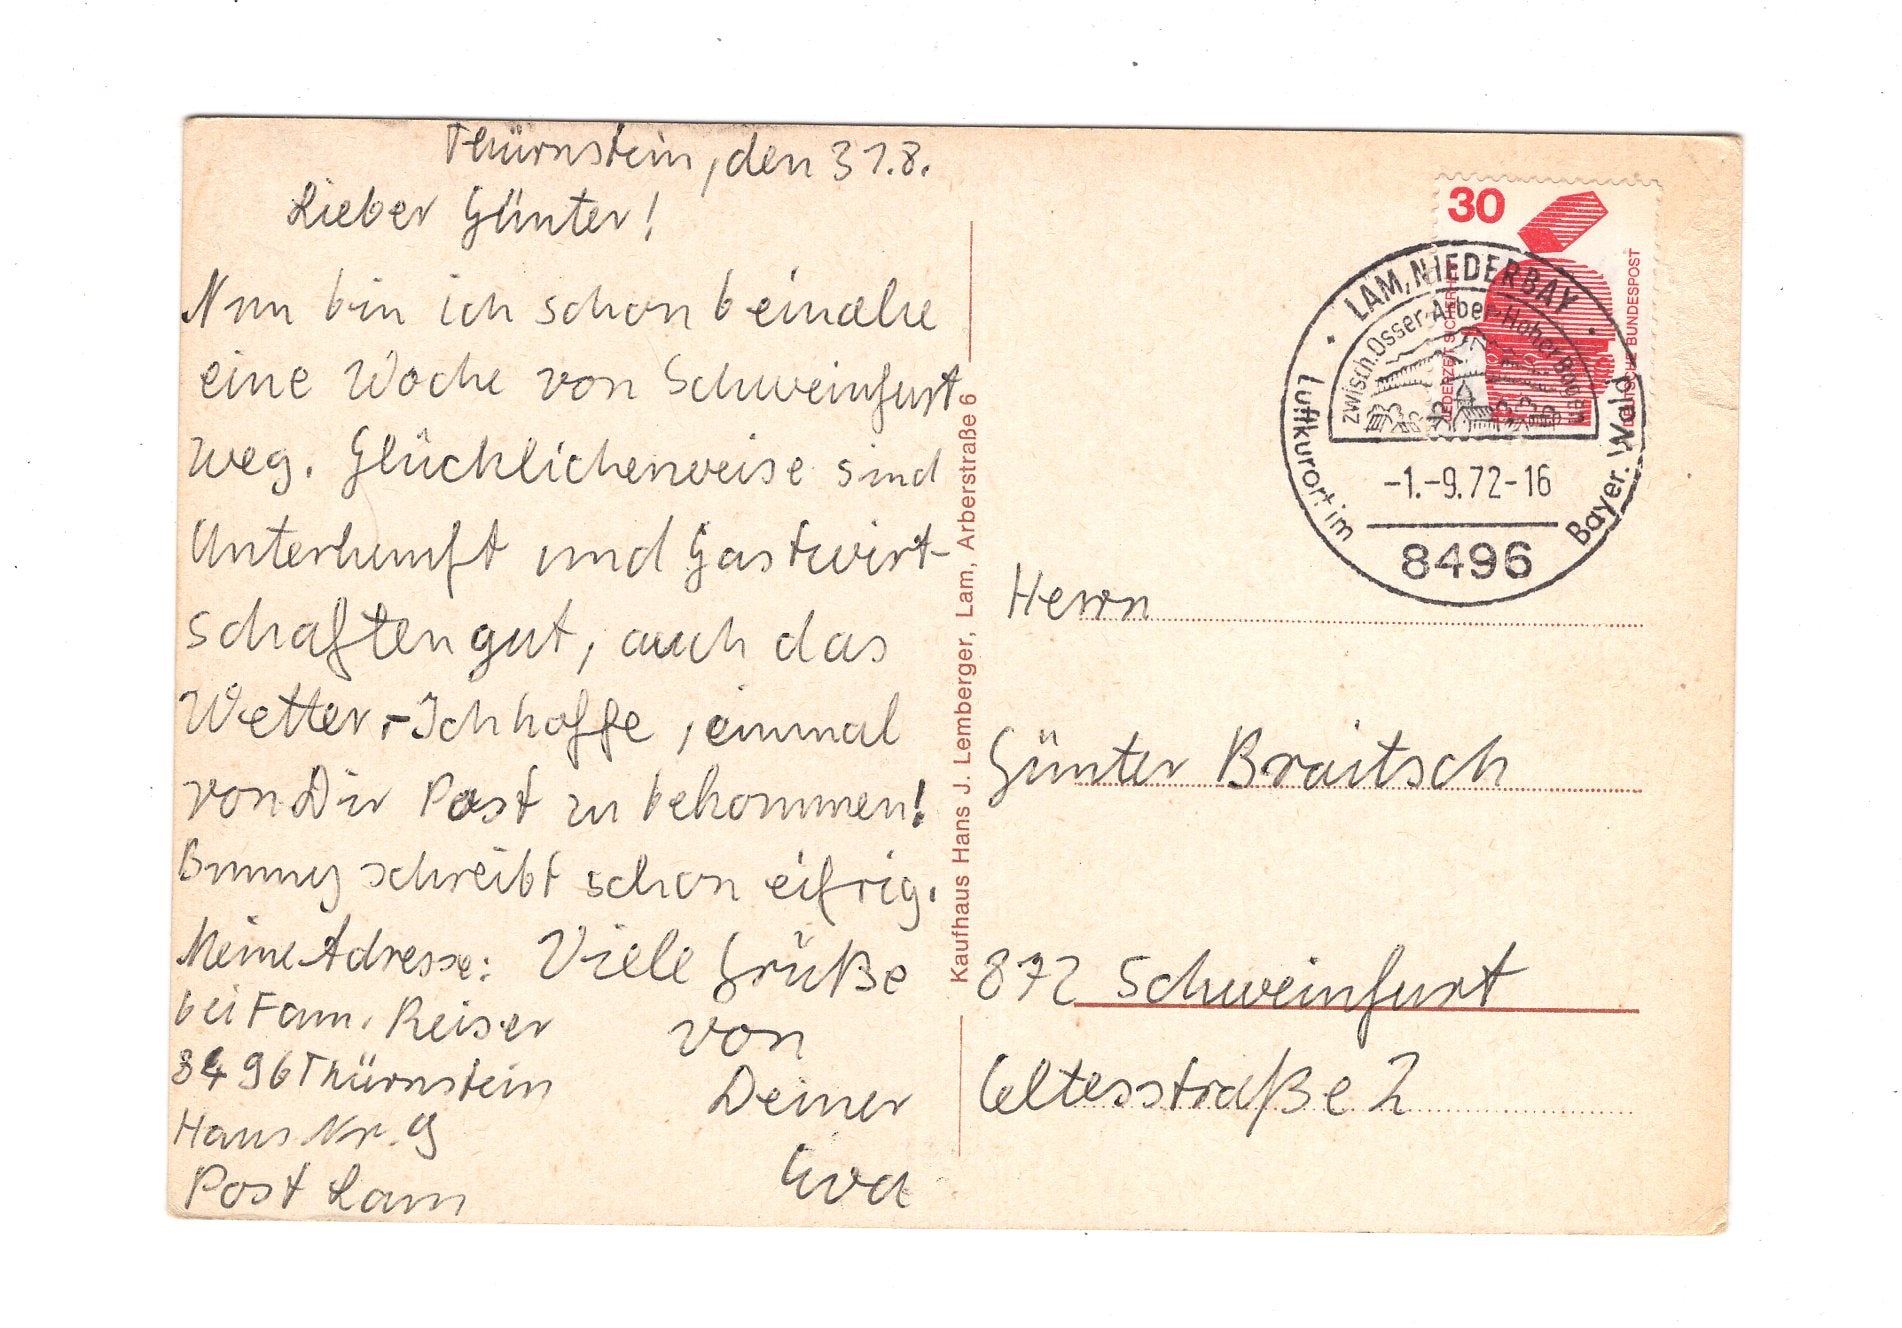 Thürnstein, den 31.8.
Lieber Günter!
Nun bin ich schon beinahe
eine Woche von Schweinfurt
weg. Glücklicherweise sind
Unterkunft und Gastwirt-
schaften gut, auch das
Wetter. - Ich hoffe, einmal
von Dir Post zu bekommen!
schreibt schon eifrig.
Meine Adresse:
bei Fam. Reiser
8496 Thürnstein
Haus Nr. 9
Post Lam
Viele Grüße
von
Deiner
Eva
Kaufhaus Hans J. Lemberger, Lam, Arberstraße 6
30
JEDERZEIT SICHERHEIT
DEUTSCHE BUNDESPOST
LAM, NIEDERBAY
zwisch. Osser-Arber-Hoher Bogen
-1.-9.72-16
8496
Luftkurort im Bayer. Wald
Herrn
Günter Braitsch
872 Schweinfurt
Celtesstraße 2